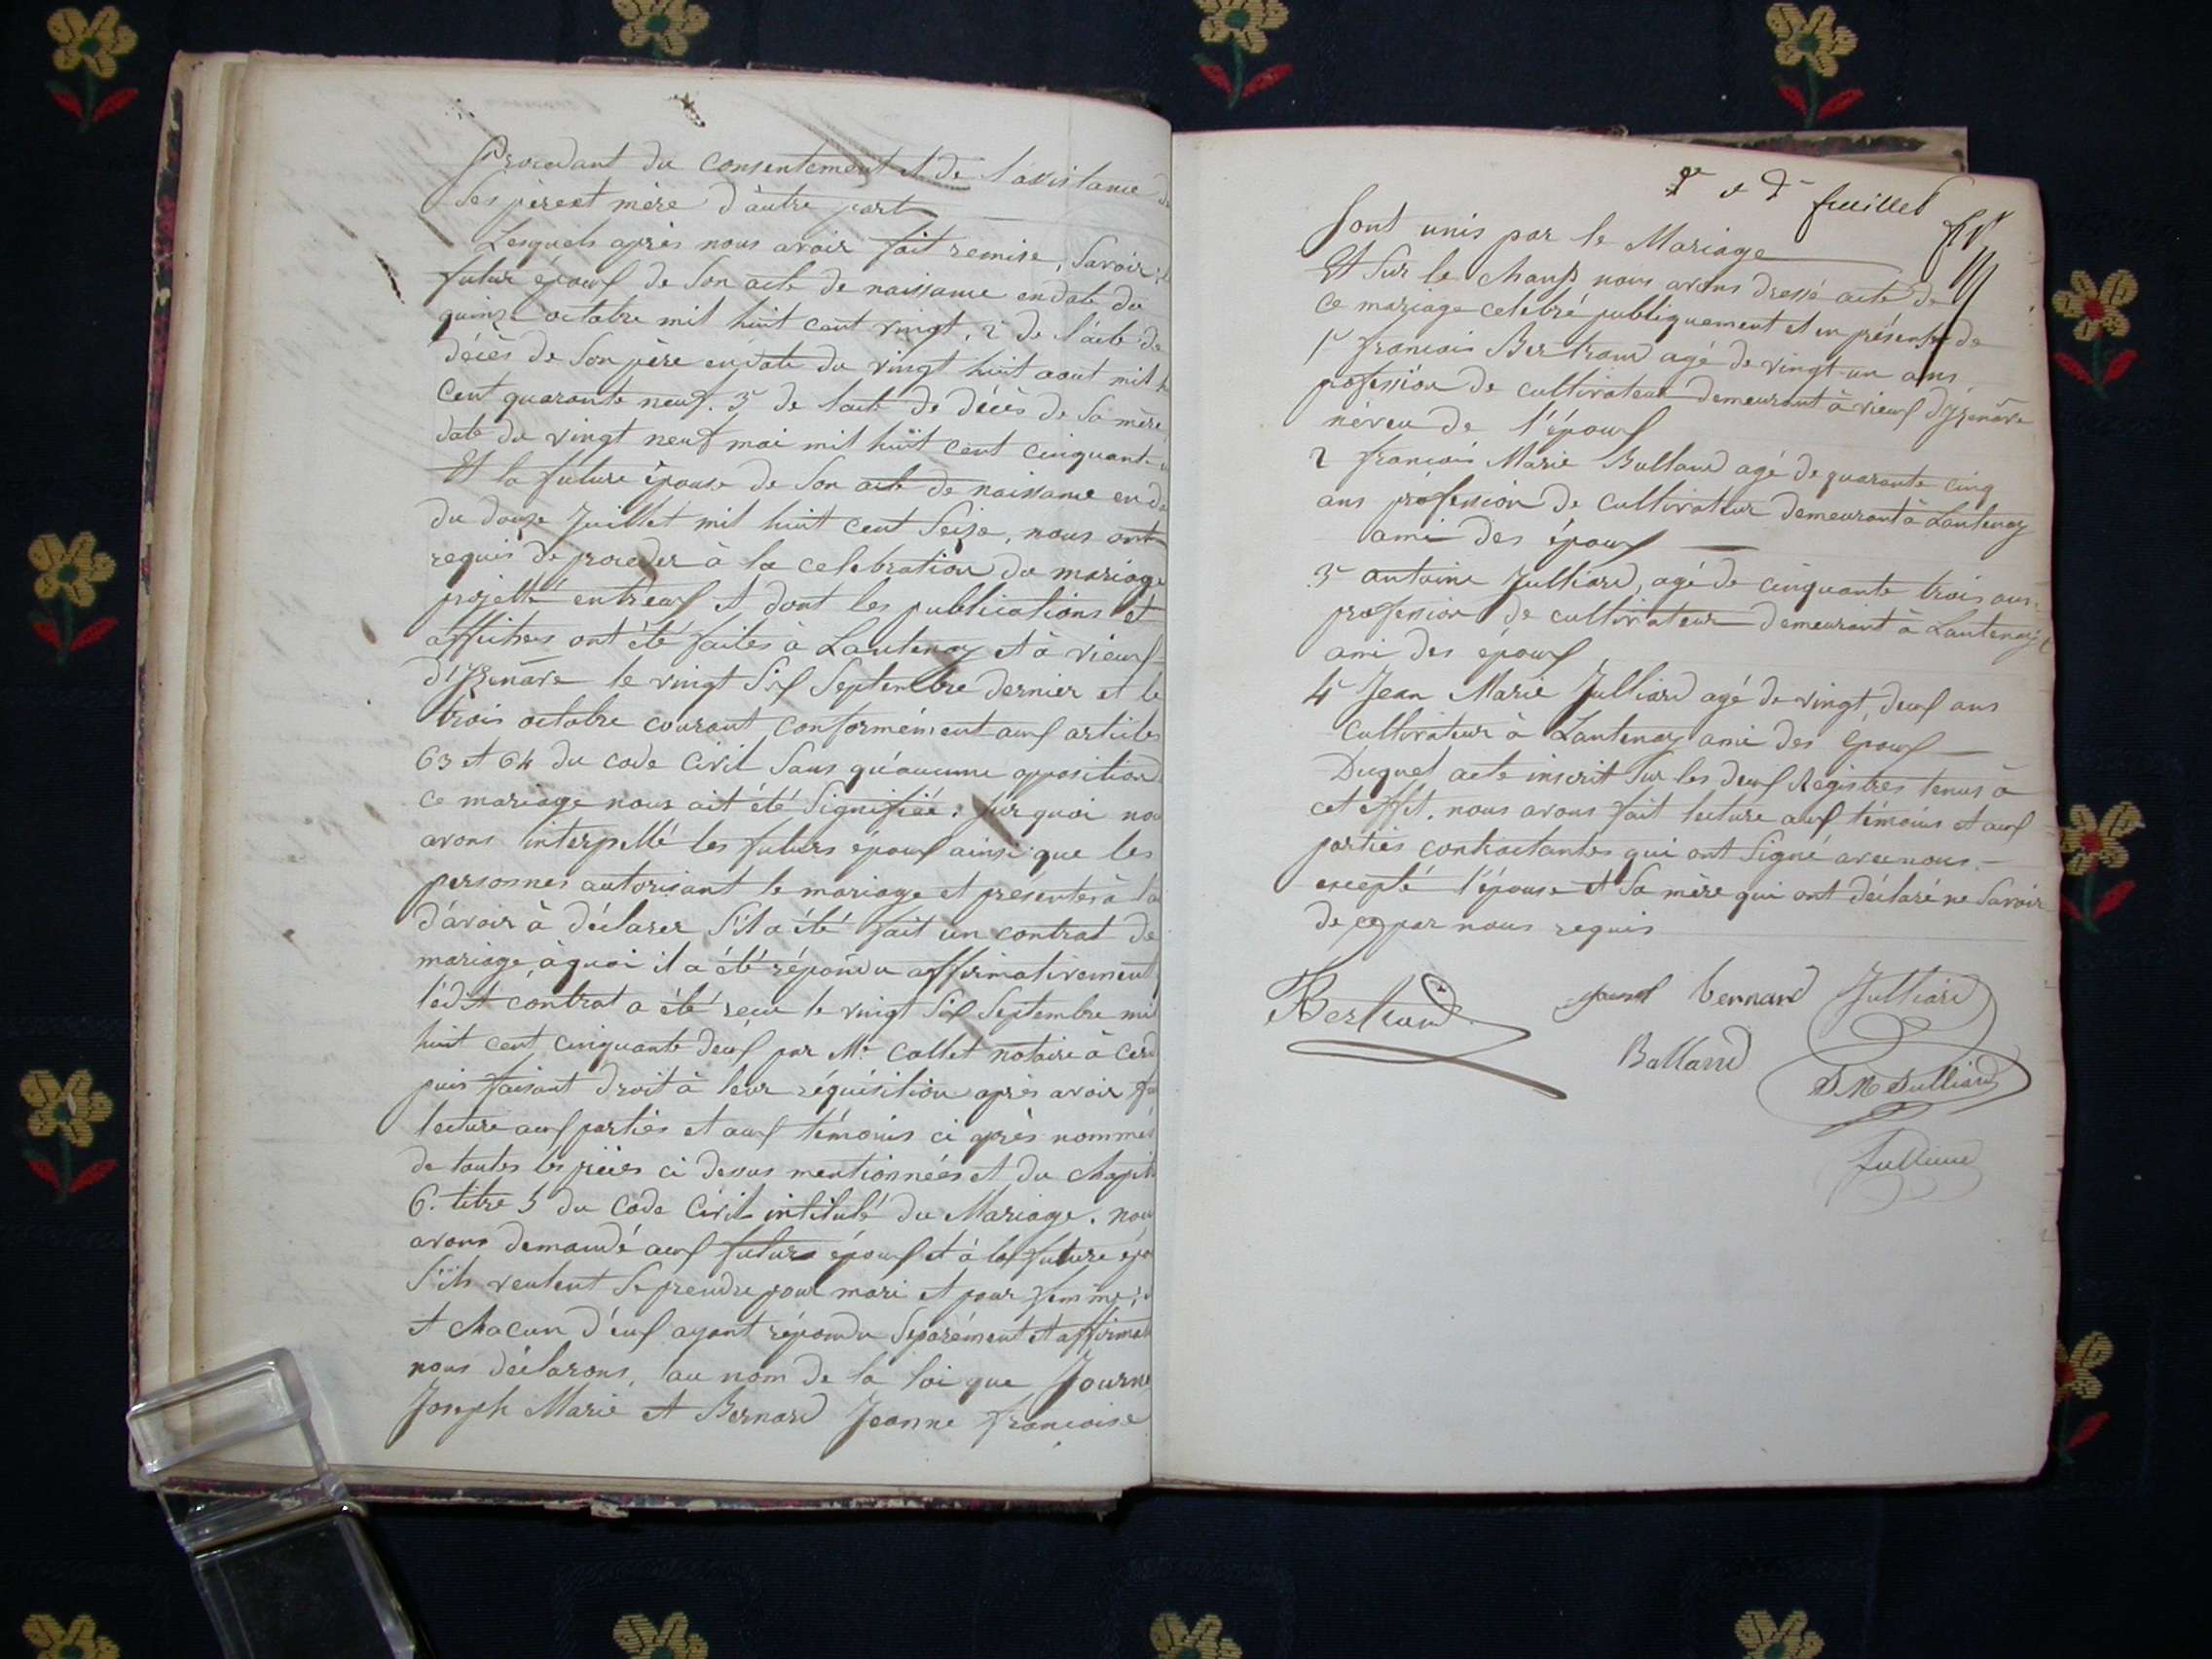 Procedant du consentement et de l'assistance de
ses père et mère d'autre part
Lesquels après nous avoir fait remise, Savoir; le
futur époux de Son acte de naissance en date du
quinze octobre mil huit cent vingt, 2° de l'acte de
décès de Son père en date du vingt huit aout mil h
cent quarante neuf. 3° de l'acte de décès de Sa mère
date du vingt neuf mai mil huit cent cinquante
Et la future épouse de Son acte de naissance en da
du douze Juillet mil huit cent Seize, nous ont
requis de proceder à la celebration du mariage
projetté entr'eux et dont les publications et
affiches ont été faites à Lantenay et à vieux
d'Yzenave le vingt Six Septembre dernier et le
trois octobre courant conformément aux articles
63 et 64 du code Civil Sans qu'aucune opposition
ce mariage nous ait été Signifiée; Sur quoi nou
avons interpellé les futurs époux ainsi que les
personnes autorisant le mariage et presentes à l'a
d'avoir à déclarer S'il a été fait un contrat de
mariage, à quoi il a été répondu affirmativement
ledit contrat a été reçu le vingt Six Septembre mil
huit cent cinquante deux par Me Collet notaire à Cerd
puis faisant droit à leur réquisition après avoir fa
lecture aux parties et aux témoins ci après nommés
de toutes les pièces ci dessus mentionnées et du chapit
6. titre 5 du Code Civil intitulé du Mariage. nou
avons demandé aux futurs époux et à la future épo
S'ils veulent Se prendre pour mari et pour femme;
et chacun d'eux ayant répondu Séparément et affirmat
nous déclarons, au nom de la loi que Journe
Joseph Marie et Bernard Jeanne françoise
feuillet
Sont unis par le Mariage
Et Sur le champ nous avons dressé acte de
ce mariage celebré publiquement et en présence de
1° francois Bertrand agé de vingt-un ans
profession de cultivateur demeurant à vieux d'yzenave
néveu de l'époux
2 françois Marie Balland agé de quarante cinq
ans profession de cultivateur demeurant à Lantenay
ami des époux
3° antoine Julliard, agé de cinquante trois ans
profession de cultivateur demeurant à Lantenay
ami des époux
4° Jean Marie Julliard agé de vingt deux ans
Cultivateur à Lantenay ami des Epoux
Duquel acte inscrit Sur les deux Régistres tenus à
cet effet, nous avons fait lecture aux témoins et aux
parties contractantes qui ont Signé avec nous.
excepté l'épouse et Sa mère qui ont déclaré ne Savoir
de ce par nous requis
Bertrand bernard Julliard
Balland
J. M Julliard